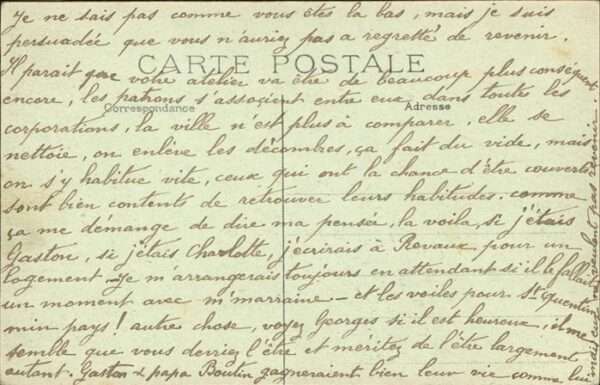 Je ne sais pas comme vous êtes la bas, mais je suis
persuadée que vous n'auriez pas a regretté de revenir.
CARTE POSTALE
Il parait que votre atelier va être de beaucoup plus conséquent
encore, les patrons s'associent entre eux dans toutes les
Correspondance
Adresse
corporations, la ville n'est plus à comparer, elle se
nettoie, on enlève les décombres, ça fait du vide, mais
on s'y habitue vite, ceux qui ont la chance d'être couverts
sont bien contents de retrouver leurs habitudes. comme
ça me démange de dire ma pensée, la voila, si j'étais
Gaston, si j'étais Charlotte, j'écrirais à Revaux pour un
logement. Je m'arrangerais toujours en attendant si il le fallait
un moment avec m'marraine - et les voiles pour St Quentin
min pays! autre chose, voyez Georges si il est heureux, il me
semble que vous devriez l'être et méritez de l'être largement
autant. Gaston & papa Boutin gagneraient bien leur vie comme lui
pas revenir.